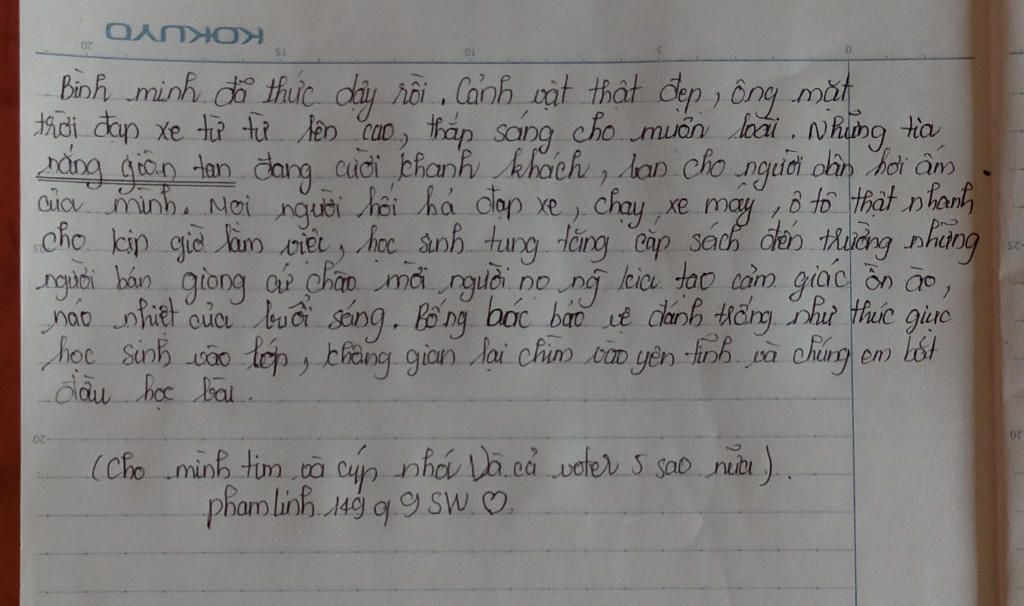 KOKUYO
20 15 10 5 0
Bình minh đã thức dậy rồi. Cảnh vật thật đẹp, ông mặt
trời đạp xe từ từ lên cao, thắp sáng cho muôn loài. Những tia
nắng giòn tan đang cười khanh khách, ban cho người dân hơi ấm
của mình. Mọi người hối hả đạp xe, chạy xe máy, ô tô thật nhanh
cho kịp giờ làm việc, học sinh tung tăng cặp sách đến trường những
người bán giong cứ chào mời người nọ ng kia tạo cảm giác ồn ào,
náo nhiệt của buổi sáng. Bỗng bác bảo vệ đánh trống như thúc giục
học sinh vào lớp, không gian lại chìm vào yên tĩnh và chúng em bắt
đầu học bài.
(Cho mình tim và cúp nhá Và cả voter 5 sao nữa).
phamlinh 149 q 9 SW ♡.
25
20
25
20